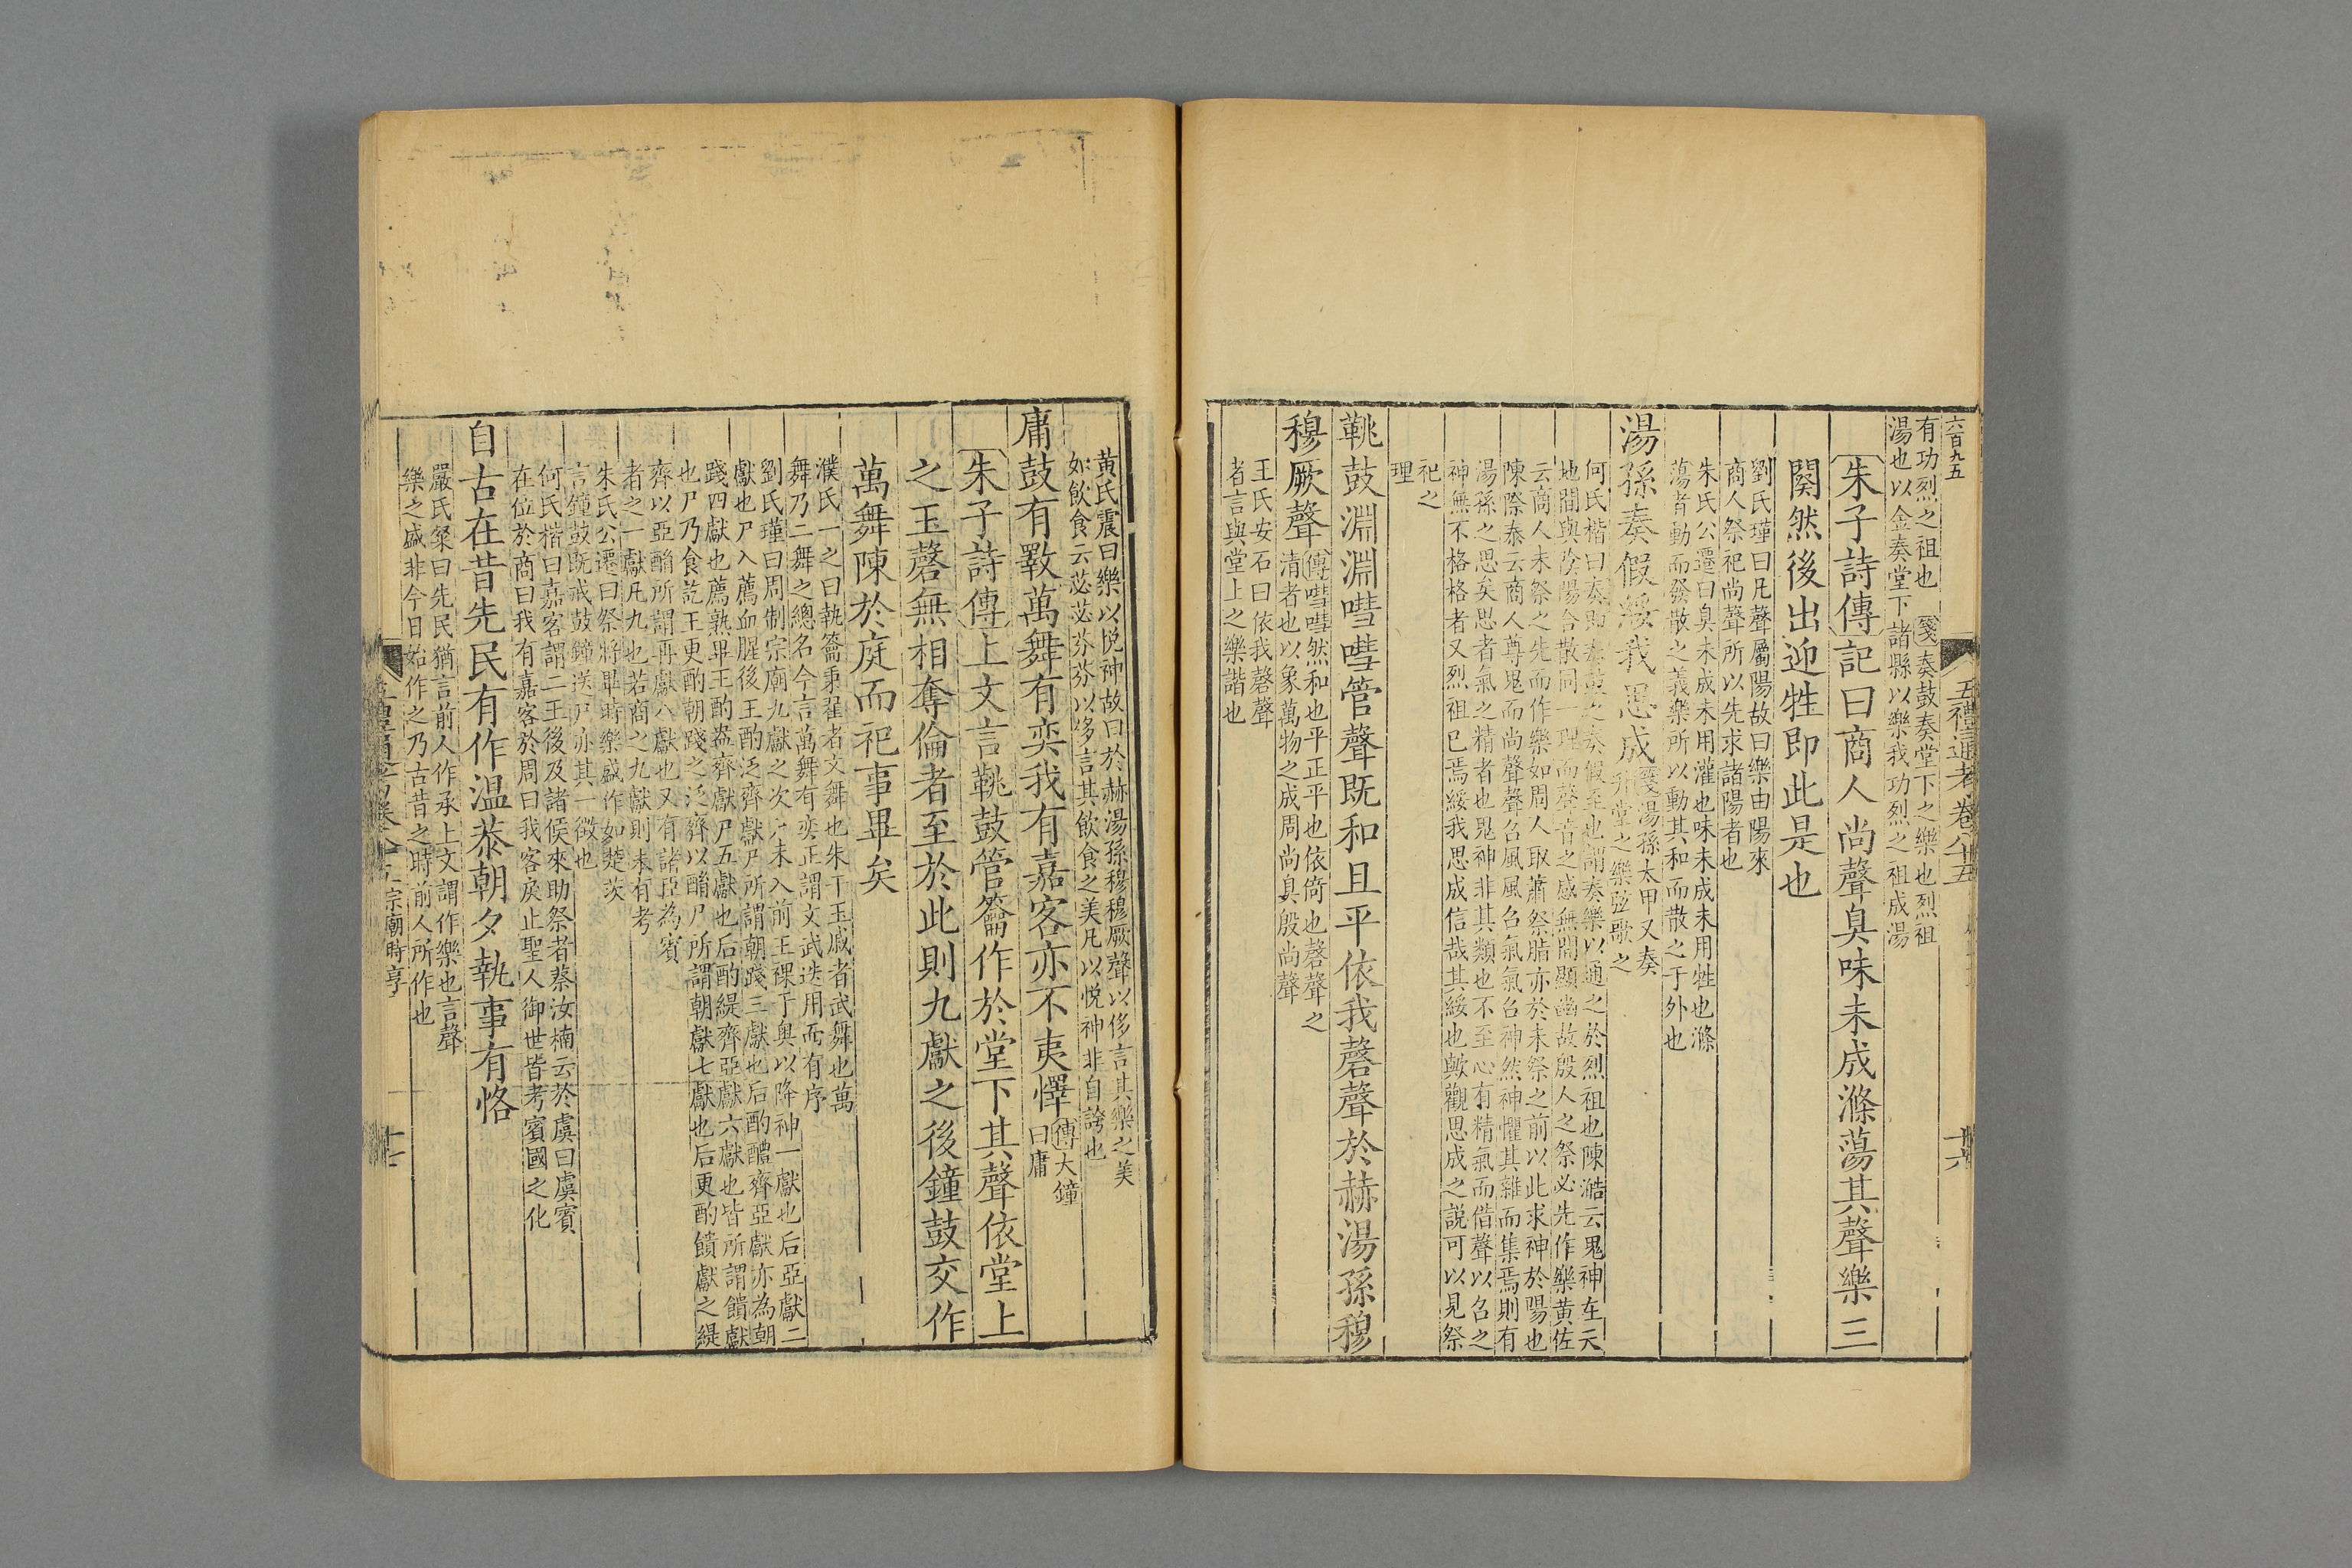 六百九五
五禮通考卷八十五
十六
有功烈之祖也 箋奏鼓奏堂下之樂也烈祖
湯也以金奏堂下諸縣以樂我功烈之祖成湯
朱子詩傳記曰商人尚聲臭味未成滌蕩其聲樂三
闋然後出迎牲即此是也
劉氏瑾曰凡聲屬陽故曰樂由陽來
商人祭祀尚聲所以先求諸陽者也
朱氏公遷曰臭未成未用灌也味未成未用牲也滌
蕩者動而發散之義樂所以動其和而散之于外也
湯孫奏假綏我思成箋湯孫太甲又奏
升堂之樂弦歌之
何氏楷曰奏即奏鼓之奏假至也謂奏樂以通之於烈祖也陳澔云鬼神在天
地間與陰陽合散同一理而聲音之感無間顯幽故殷人之祭必先作樂黄佐
云商人未祭之先而作樂如周人取蕭祭脂亦於未祭之前以此求神於陽也
陳際泰云商人尊鬼而尚聲聲召風風召氣氣召神然神懼其雜而集焉則有
湯孫之思矣思者氣之精者也鬼神非其類也不至心有精氣而借聲以召之
神無不格格者又烈祖已焉綏我思成信哉其綏也歟觀思成之説可以見祭
祀之
理
鞉鼓淵淵嘒嘒管聲既和且平依我磬聲於赫湯孫穆
穆厥聲傳嘒嘒然和也平正平也依倚也磬聲之
清者也以象萬物之成周尚臭殷尚聲
王氏安石曰依我磬聲
者言與堂上之樂諧也
黄氏震曰樂以悦神故曰於赫湯孫穆穆厥聲以侈言其樂之美
如飲食云苾苾芬芬以侈言其飲食之美凡以悦神非自誇也
庸鼓有斁萬舞有奕我有嘉客亦不夷懌傳大鐘
曰庸
朱子詩傳上文言鞉鼓管籥作於堂下其聲依堂上
之玉磬無相奪倫者至於此則九獻之後鐘鼓交作
萬舞陳於庭而祀事畢矣
濮氏一之曰執籥秉翟者文舞也朱干玉戚者武舞也萬
舞乃二舞之總名今言萬舞有奕正謂文武迭用而有序
劉氏瑾曰周制宗廟九獻之次尸未入前王祼于奥以降神一獻也后亞獻二
獻也尸入薦血腥後王酌泛齊獻尸所謂朝踐三獻也后酌醴齊亞獻亦為朝
踐四獻也薦熟畢王酌盎齊獻尸五獻也后酌緹齊亞獻六獻也皆所謂饋獻
也尸乃食訖王更酌朝踐之泛齊以酳尸所謂朝獻七獻也后更酌饋獻之緹
齊以亞酳所謂再獻八獻也又有諸臣為賓
者之一獻凡九也若商之九獻則未有考
朱氏公遷曰祭將畢時樂盛作如楚茨
言鐘鼓既戒鼓鐘送尸亦其一徴也
何氏楷曰嘉客謂二王後及諸侯來助祭者蔡汝楠云於虞曰虞賓
在位於商曰我有嘉客於周曰我客戾止聖人御世皆考賓國之化
自古在昔先民有作温恭朝夕執事有恪
嚴氏粲曰先民猶言前人作承上文謂作樂也言聲
樂之盛非今日始作之乃古昔之時前人所作也
宗廟時享